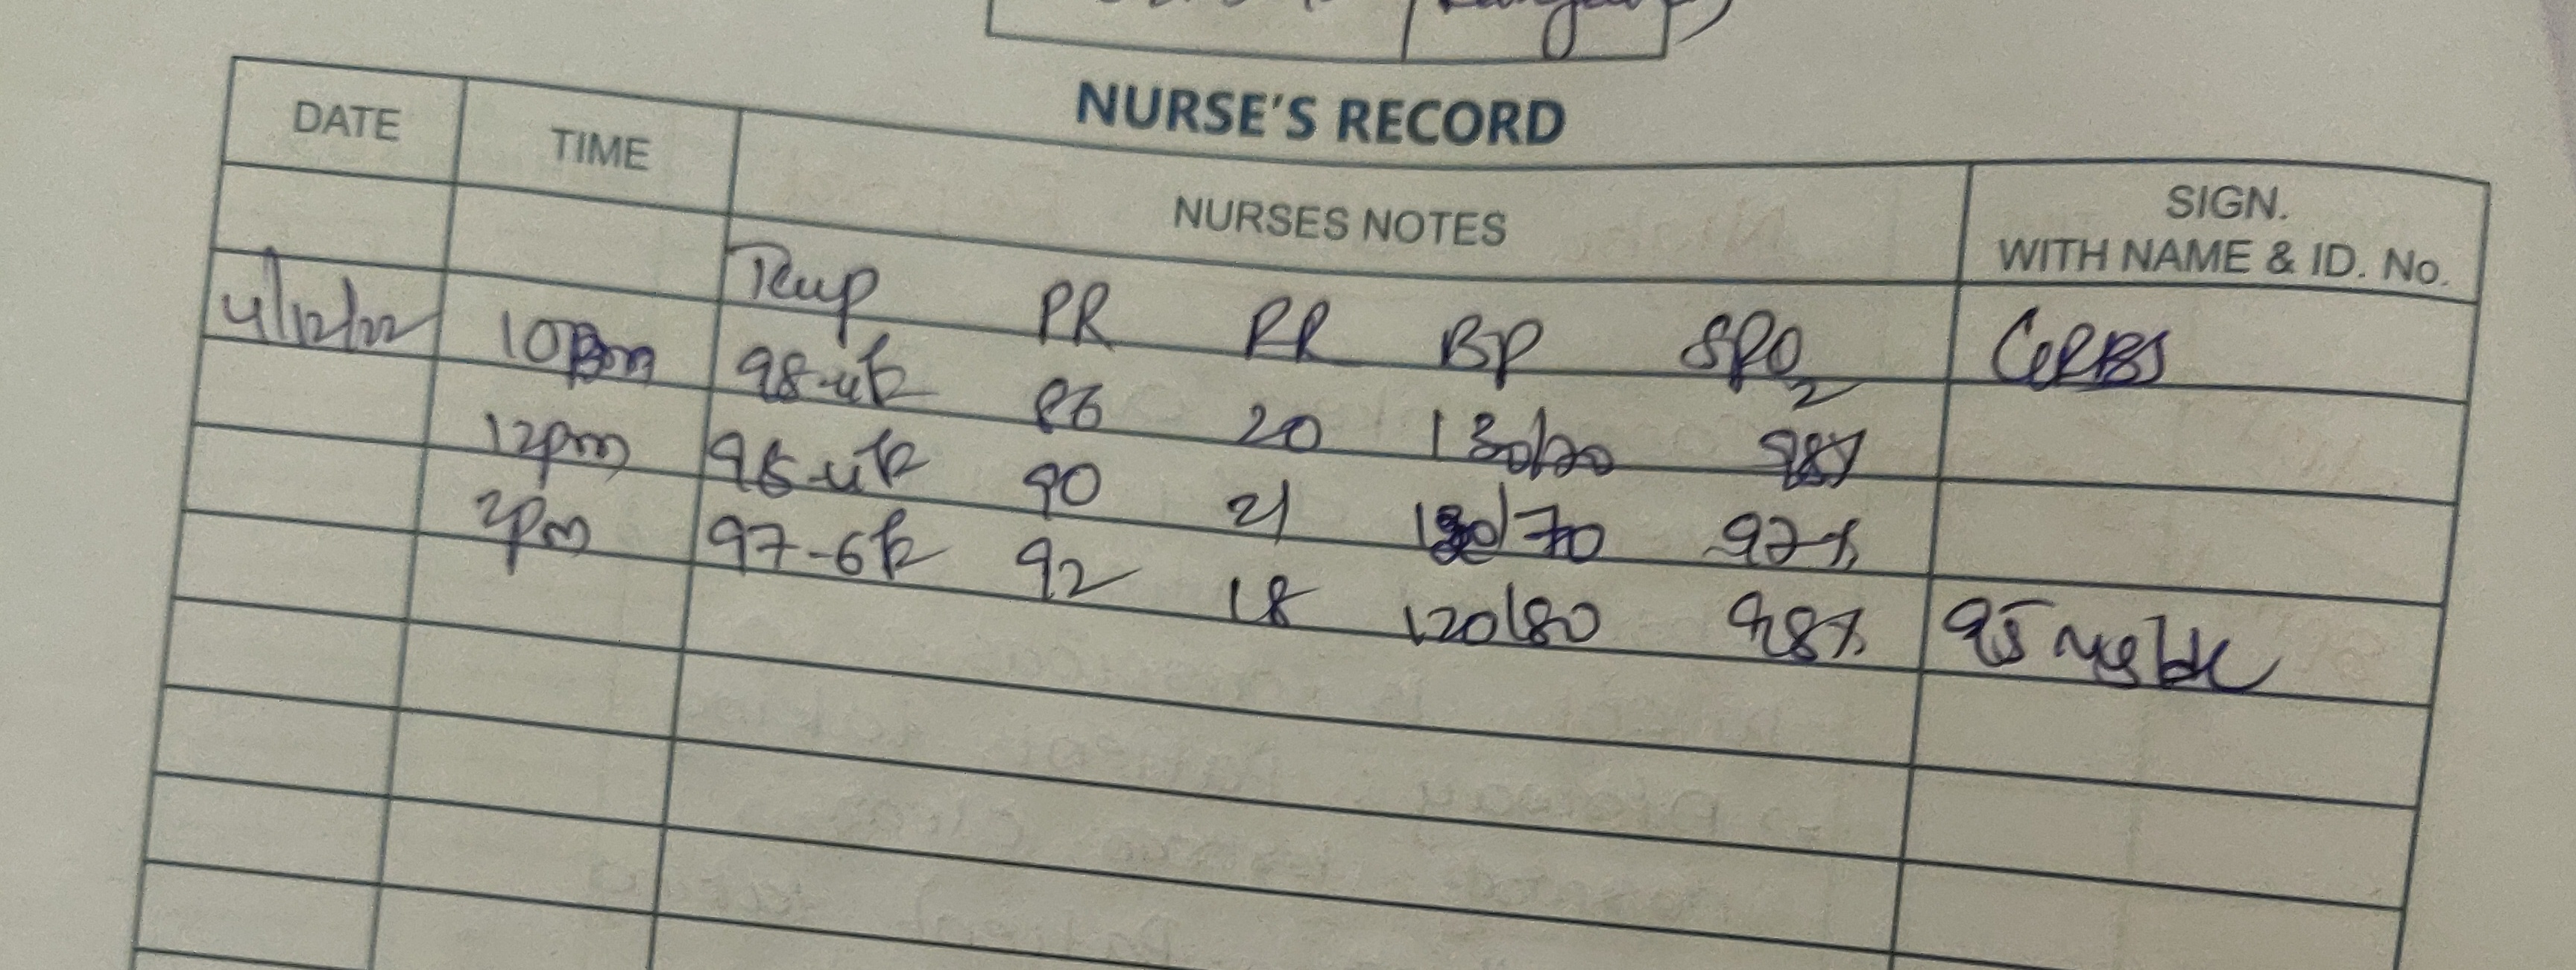 NURSE'S RECORD
DATE TIME NURSES NOTES SIGN. WITH NAME & ID. No.
Temp PR RR BP SPO2 GRBS
4/12/22 10pm 98.4F 86 20 98%
12pm 98.4F 90 21 /70 97%
2pm 97.6F 92 18 120/80 98% 95 mg/dl